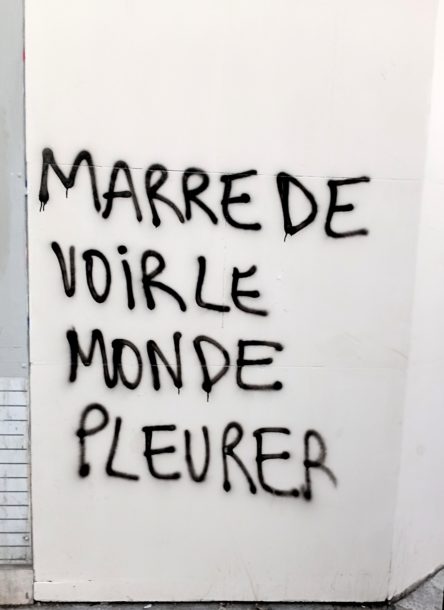 MARRE DE
VOIR LE
MONDE
PLEURER